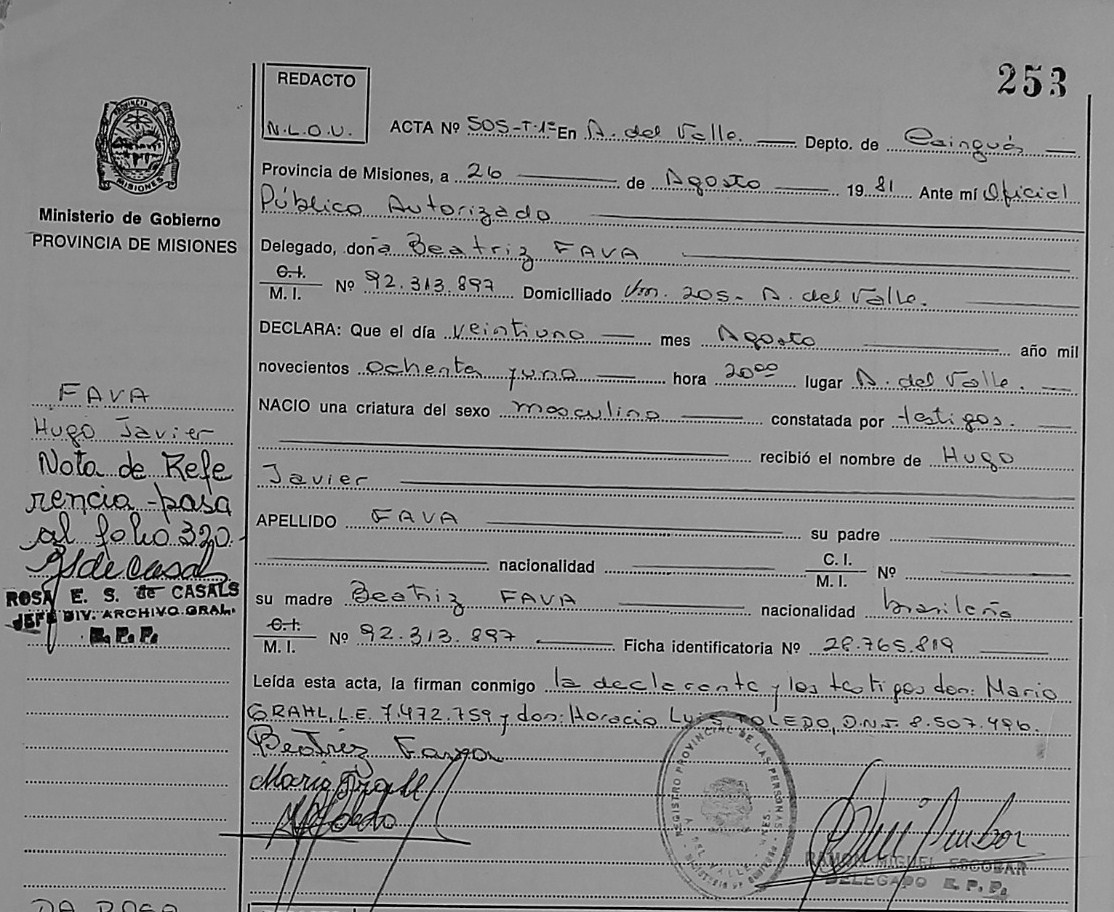 253
REDACTO
N.L.O.U.
PROVINCIA DE
MISIONES
Ministerio de Gobierno
PROVINCIA DE MISIONES
ACTA Nº 505-T-1º En A. del Valle. Depto. de Cainguás
Provincia de Misiones, a 26 de Agosto 19 81 Ante mí Oficial
Público Autorizado
Delegado, doña Beatriz FAVA
C.I.
M. I. Nº 92.313.897 Domiciliado Km. 205- A. del Valle.
DECLARA: Que el día veintiuno mes Agosto año mil
novecientos ochenta yuno hora 20⁰⁰ lugar A. del Valle.
NACIO una criatura del sexo masculino constatada por testigos.
recibió el nombre de Hugo
Javier
APELLIDO FAVA su padre
nacionalidad C. I.
M. I. Nº
su madre Beatriz FAVA nacionalidad brasileña
C.I.
M. I. Nº 92.313.897 Ficha identificatoria Nº 28.765.819
Leída esta acta, la firman conmigo la declarante y los testigos don: Mario
GRAHL, L.E. 7.472.759 y don: Horacio Luis TOLEDO, D.N.I. 8.507.496.
Beatriz
Mario Grahl
Toledo
REGISTRO PROVINCIAL DE LAS PERSONAS
A. DEL VALLE
RAMON MIGUEL ESCOBAR
DELEGADO R. P. P.
FAVA
Hugo Javier
Nota de Refe
rencia-pasa
al folio 320-
ROSA E. S. de CASALS
JEFE DIV. ARCHIVO GRAL.
R. P. P.
DA ROSA